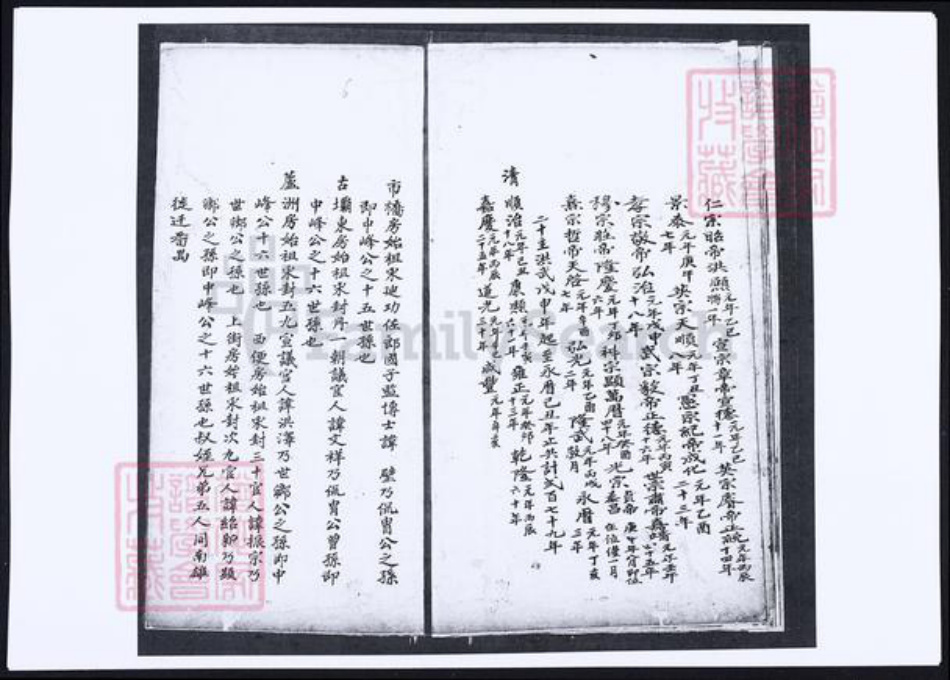 仁宗昭帝洪熙元年乙巳將一年 宣宗章帝宣德元年乙巳十一年 英宗睿帝正統元年丙辰十四年
景泰元年庚午七年 英宗天順元年丁丑年 憲宗紀帝成化元年乙酉二十三年
孝宗敬帝弘治元年戊申十八年 武宗毅帝正德元年丙寅十六年 世宗肅帝嘉靖元年壬年四十五年
穆宗莊帝隆慶元年丁卯六年 神宗顯萬曆元年癸酉四十八年 光宗泰昌 庚申年八月即位 在位僅一月
熹宗哲帝天啓元年辛酉七年 弘光元年乙酉二年 隆武元年丙戌數月 永曆元年丁亥三年
二十主洪武戊申年起至永曆己丑年止共計弍百七十九年
清
順治元年十八年 康熙六十一年 雍正元年癸卯十三年 乾隆元年丙辰六十年
嘉慶元年丙辰二十五年 道光元年辛巳三十年 咸豐元年辛亥
市橋房始祖宋廸功佐郎國子監博士諱 璧乃侃胄公之孫
即中峰公之十五世孫也
古壩東房始祖宋封丹一朝議官人諱文祥乃侃胄公曾孫即
中峰公之十六世孫也
蘆洲房始祖宋封五九宣議官人諱洪澤乃世卿公之孫即中
峰公十六世孫也 西便房始祖宋封三十官人諱振宗乃
世卿公之孫也 上街房始祖宋封次九官人諱紹卿乃顯
卿公之孫即中峰公之十六世孫也叔姪兄弟五人同南雄
徙迁番禺
FamilySearch